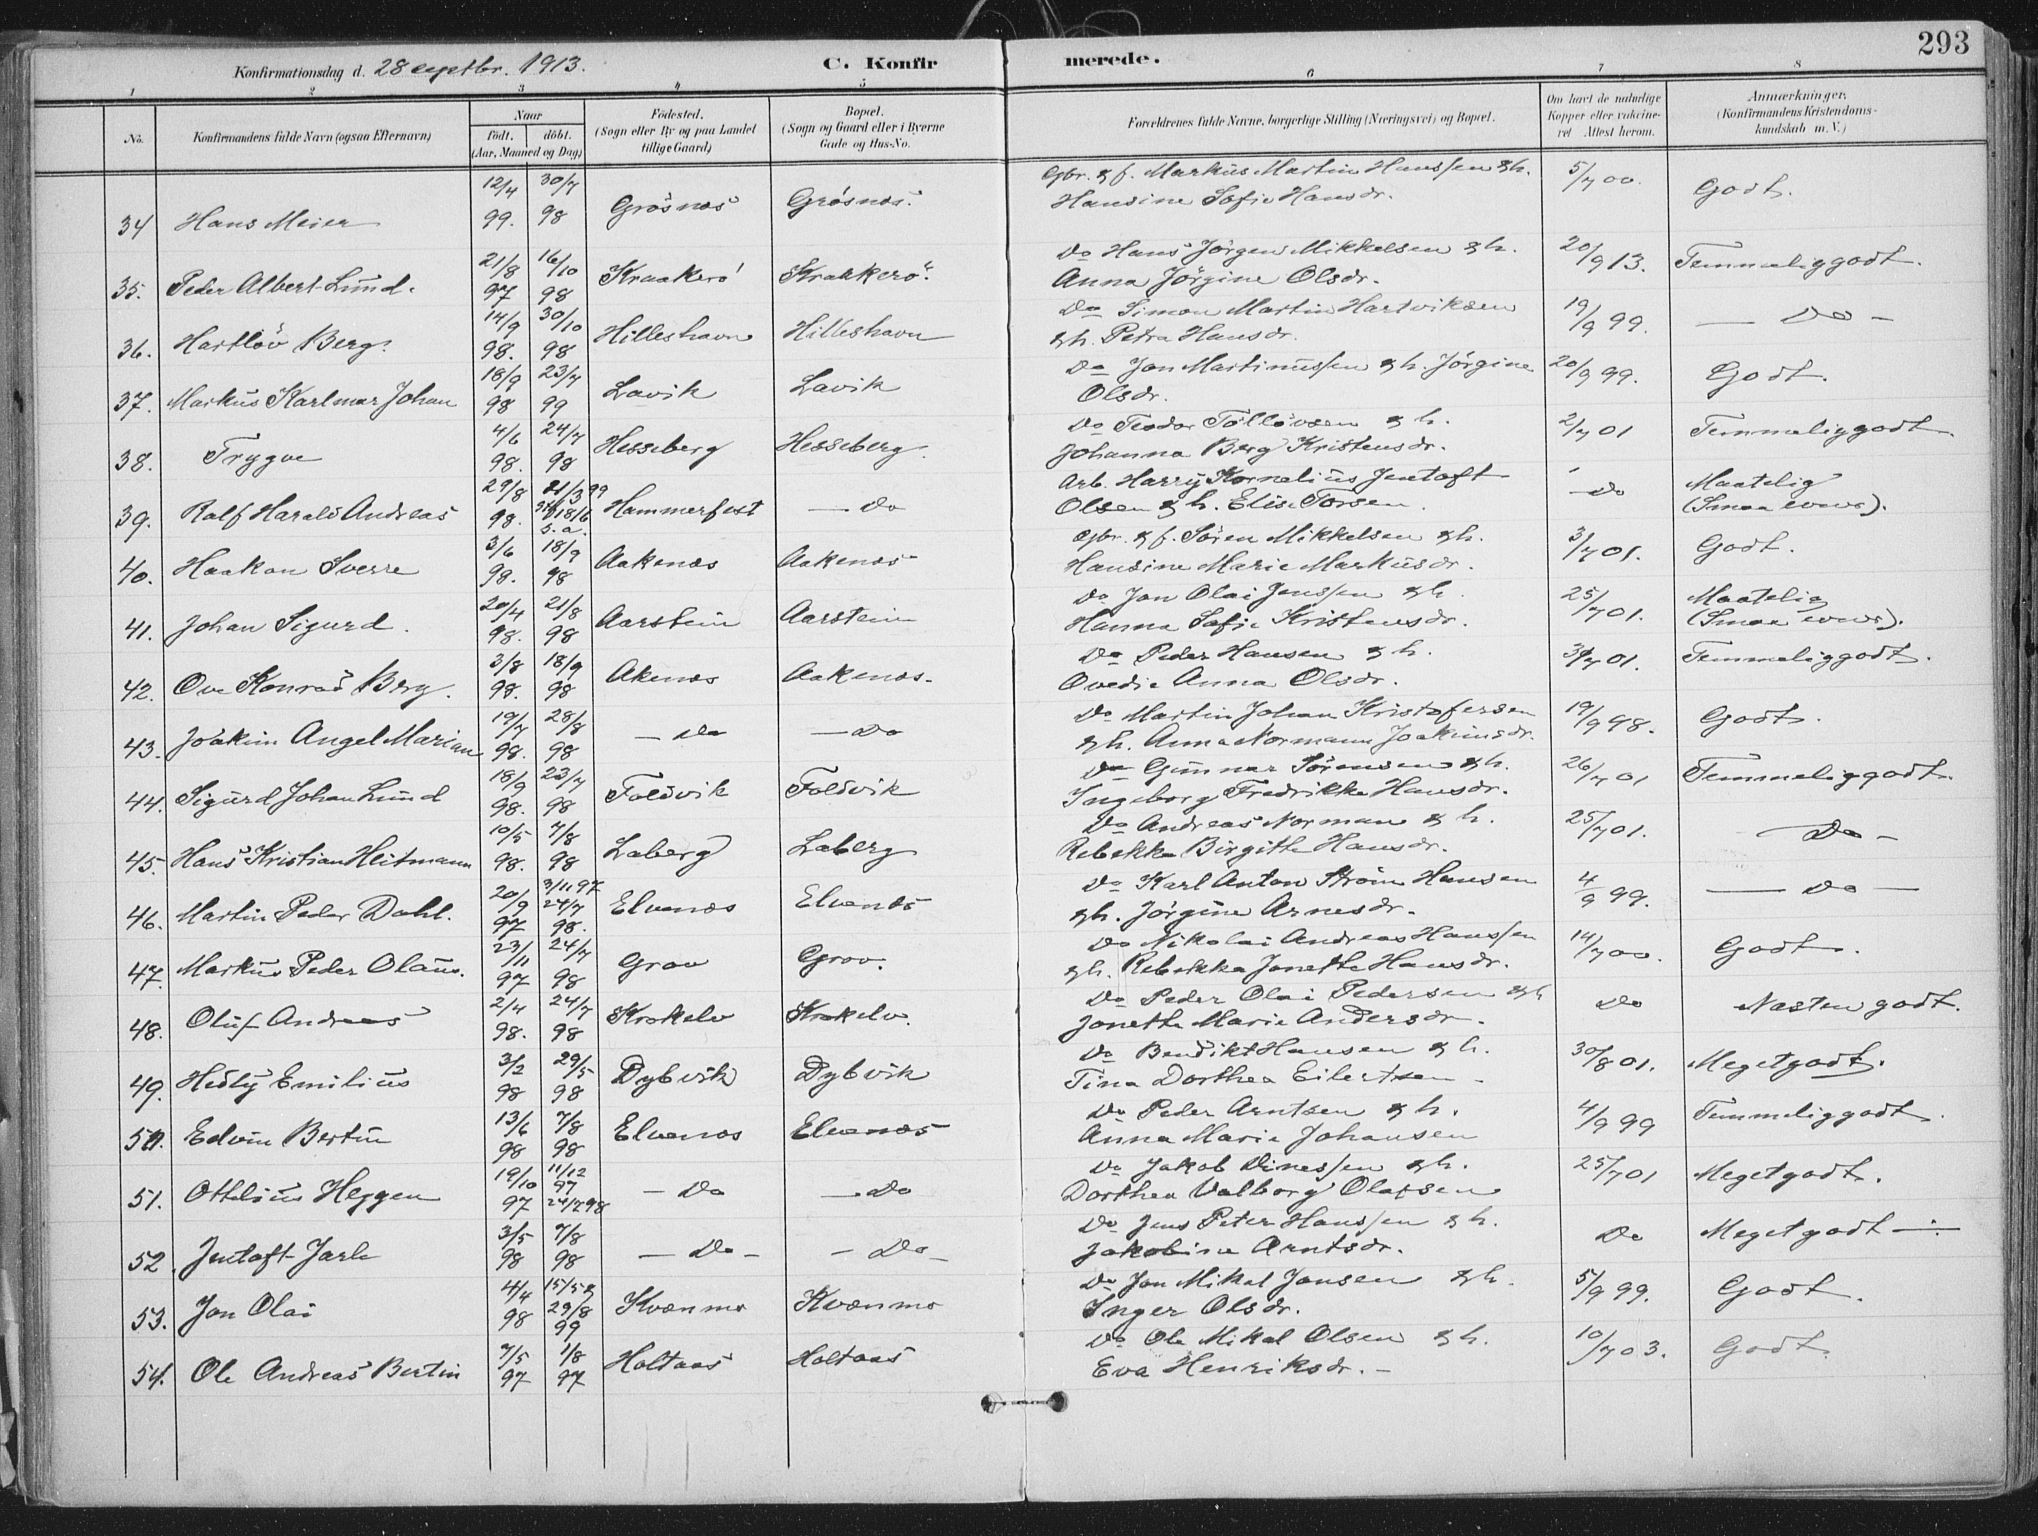 293
Konfirmationsdag d. 28 septbr. 1913.
C. Konfirmerede.
1 2 3 4 5 6 7 8
No. Konfirmandens fulde Navn (ogsaa Efternavn) Naar født. døbt. (Aar, Maaned og Dag) Fødested. (Sogn eller By og paa Landet tillige Gaard) Bopæl. (Sogn og Gaard eller i Byerne Gade og Hus-No. Forældrenes fulde Navne, borgerlige Stilling (Næringsvei) og Bopæl. Om havt de naturlige Kopper eller vaccineret Attest herom. Anmærkninger. (Konfirmandens Kristendomskundskab m. V.)
34 Hans Meier 12/4 99. 30/7 98 Grøsnæs Grøsnæs. Gbr. & f. Markus Martin Hanssen & h. Hansine Sofie Hansdr. 5/7 00. Godt.
35. Peder Albert Lund. 21/8 97 16/10 98 Kraakerø Krakkerø. Do Hans Jørgen Mikkelsen & h. Anna Jørgine Olsdr. 20/9 13. Temmelig godt.
36. Hartløv Berg. 14/9 98. 30/10 98 Hilleshavn Hilleshavn Do Simon Martin Hartviksen & h. Petra Hansdr. 19/9 99. — Do —
37. Markus Karlmar Johan 18/9 98 23/7 99 Lavik Lavik Do Jon Martinussen & h. Jørgine Olsdr. 20/9 99. Godt.
38. Trygve 4/6 98. 24/7 98 Hesseberg Hesseberg. Do Teodor Tølløvsen & h. Johanna Berg Kristensdr. 2/7 01 Temmelig godt.
39. Ralf Harald Andreas 29/8 98. 21/3 99 18/6 s. a. Hammerfest — Do Arb. Harry Kornelius Jentoft Olsen & h. Elise Torsen. — Do Maatelig (Smaa evner).
40. Haakon Sverre 3/6 98. 18/9 98 Aakenæs Aakenæs Gbr. & f. Søren Mikkelsen & h. Hansine Marie Markusdr. 3/7 01. Godt.
41. Johan Sigurd. 20/4 98. 21/8 98 Aarstein Aarstein Do Jon Olai Jenssen & h. Hanna Sofie Kristensdr. 25/7 01. Maatelig (Smaa evner).
42. Ove Konrad Berg. 3/8 98. 18/9 98 Akenæs Aakenæs. Do Peder Hansen & h. Ovedie Anna Olsdr. 3/7 01. Temmelig godt.
43. Joakim Angel Marian 19/7 98. 28/8 98 — Do — Do Do Martin Johan Kristofersen & h. Anna Normann Joakimsdr. 19/9 98. Godt.
44. Sigurd Johan Lund 18/9 98. 23/7 98 Foldvik Foldvik Do Gunnar Sørensen & h. Ingeborg Fredrikke Hansdr. 26/7 01 Temmelig godt.
45. Hans Kristian Heitmann 10/5 98. 7/8 98 Laberg Laberg Do Andreas Norman & h. Rebekka Birgitte Hansdr. 25/7 01. — Do —
46. Martin Peder Dahl. 20/9 97 3/11 97 24/7 98. Elvenæs Elvenæs Do Karl Anton Strøm Hansen & h. Jørgine Arnesdr. 4/9 99. — Do —
47. Markus Peder Olaus. 23/11 97 24/7 98 Grov Grov. Do Nikolai Andreas Hanssen & h. Rebekka Jonette Hansdr. 14/7 00. Godt.
48. Oluf Andreas 2/4 98. 24/7 98 Krokelv Krokelv. Do Peder Olai Pedersen & h Jonette Marie Andersdr. Do Næsten godt.
49. Hedly Emilius 3/2 98 29/5 98 Dybvik Dybvik Do Bendikt Hansen & h. Tina Dorthea Eilertsen. 30/8 01. Meget godt.
50. Edvin Bertin 13/6 98 7/8 98 Elvenæs Elvenæs Do Peder Arntsen & h. Anna Marie Johansen 4/9 99 Temmelig godt.
51. Ottelius Heggen 19/10 97 11/12 97 24/7 98 — Do — Do Do Jakob Dinessen & h. Dorthea Valborg Olafsen 25/7 01 Meget godt.
52. Jentoft Jarle 3/5 98 7/8 98 — Do — — Do — Do Jens Peter Hanssen & h. Jakobine Arntsdr. Do Meget godt —
53. Jon Olai 4/4 98 15/5 29/8 99 Kvænmo Kvænmo Do Jon Mikal Jonsen & h. Inger Olsdr. 5/9 99. Godt.
54. Ole Andreas Bertin 7/5 97 1/8 97 Holtaas Holtaas Do Ole Mikal Olsen & h. Eva Henriksdr. — 10/7 03. Godt.